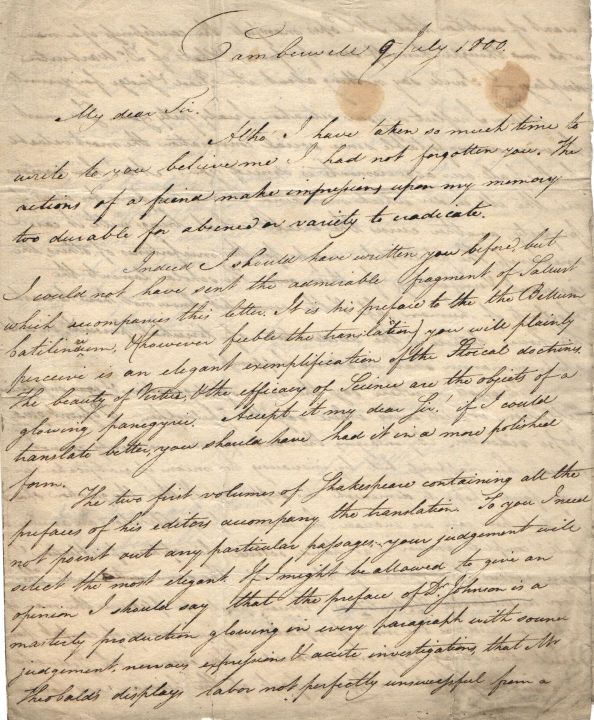 Camberwell 9 July 1800.
My dear Sir.
Altho' I have taken so much time to
write to you believe me I had not forgotten you. The
actions of a friend make impressions upon my memory
too durable for absence or variety to eradicate.
Indeed I should have written you before, but
I could not have sent the admirable fragment of Sallust
which accompanies this letter. It is his preface to the the Bellum
Catilinarium, & (however feeble the translation) you will plainly
perceive is an elegant exemplification of the Stoical doctrines.
The beauty of Virtue, & the efficacy of Science are the objects of a
glowing panegyric. Accept it my dear Sir! if I could
translate better, you should have had it in a more polished
form.
The two first volumes of Shakespeare containing all the
prefaces of his editors accompany the translation. To you I need
not point out any particular passages, your judgement will
select the most elegant. If I might be allowed to give an
opinion I should say that the preface of Dr. Johnson is a
masterly production glowing in every paragraph with sound
judgement, nervous expressions & acute investigations, that Mr
Theobald's displays labor not perfectly unsuccessful from a